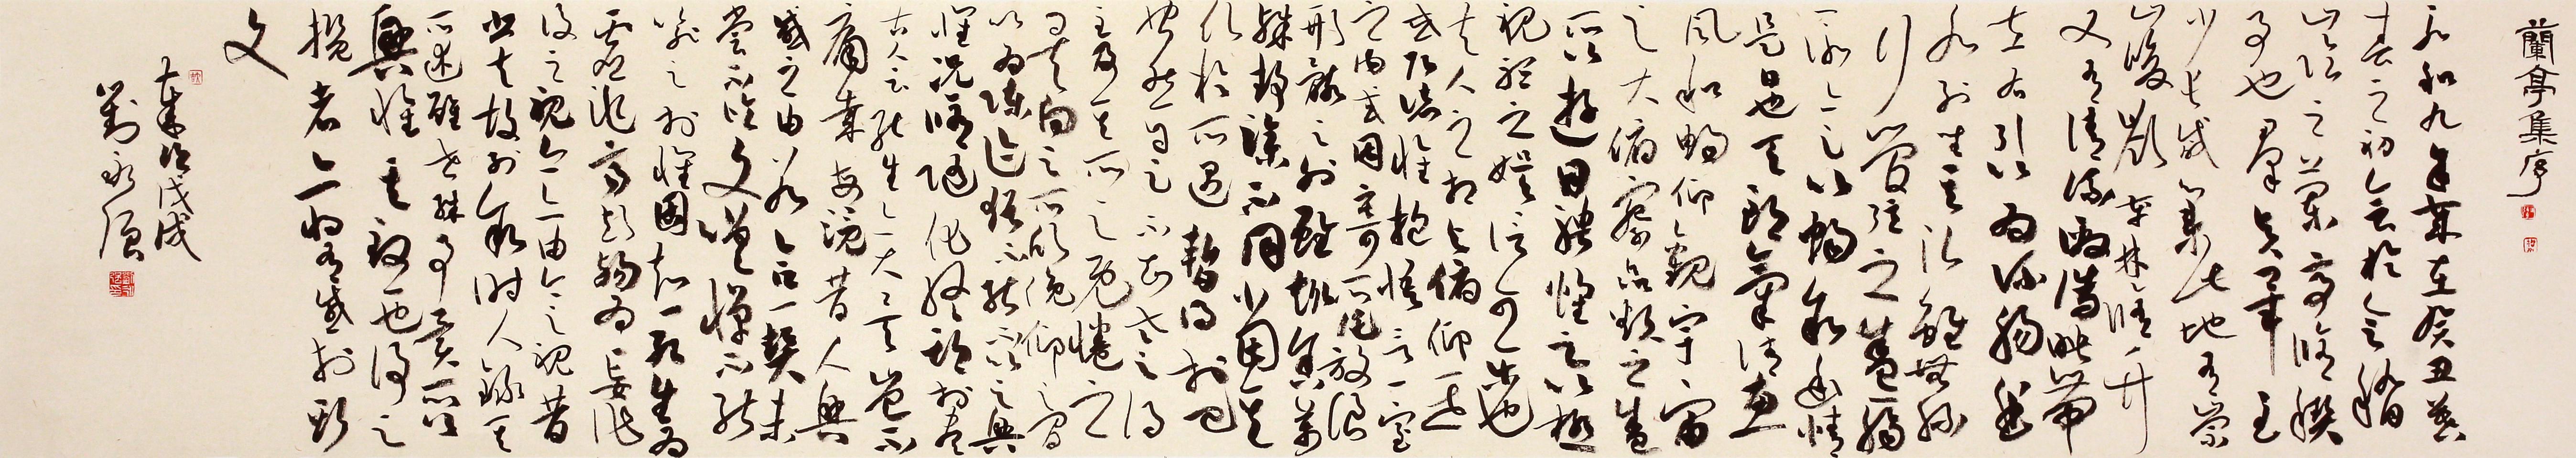 蘭亭集序
永和九年歲在癸丑暮
春之初會於會稽
山陰之蘭亭脩禊
事也羣賢畢至
少長咸集此地有崇
山峻嶺茂林脩竹
又有清流激湍映帶
左右引以為流觴曲
水列坐其次雖無絲
竹管弦之盛一觴
一詠亦足以暢敘幽情
是日也天朗氣清惠
風和暢仰觀宇宙
之大俯察品類之盛
所以遊目騁懷足以極
視聽之娛信可樂也
夫人之相與俯仰一世
或取諸懷抱悟言一室
之內或因寄所託放浪
形骸之外雖趣舍萬
殊靜躁不同當其
欣於所遇暫得於己
快然自足不知老之將
至及其所之既惓
向之所欣俛仰之間
以為陳迹猶不能不以之興
懷況脩短隨化終期於盡
古人云死生亦大矣豈不
痛哉每覽昔人興
感之由若合一契未
嘗不臨文嗟悼不能
喻之於懷固知一死生為
虛誕齊彭殤為妄作
後之視今亦由今之視昔
悲夫故列敘時人錄其
所述雖世殊事異所以
興懷其致一也後之
攬者亦將有感於斯
文
歲次戊戌